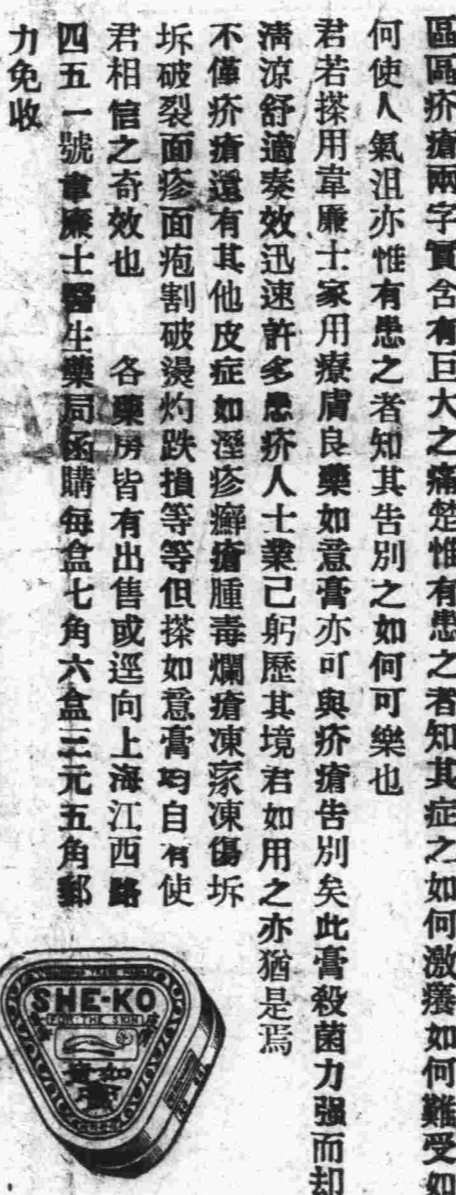 區區疥瘡兩字實含有巨大之痛楚惟有患之者知其症之如何激癢如何難受如
何使人氣沮亦惟有患之者知其告別之如何可樂也
君若搽用韋廉士家用療膚良藥如意膏亦可與疥瘡告別矣此膏殺菌力强而却
淸涼舒適奏效迅速許多患疥人士業己躬歷其境君如用之亦猶是焉
不僅疥瘡還有其他皮症如溼疹癬瘡腫毒爛瘡凍瘃凍傷坼
坼破裂面疹面疱割破燙灼跌損等等但搽如意膏均自有使
君相信之奇效也　各藥房皆有出售或逕向上海江西路
四五一號韋廉士醫生藥局函購每盒七角六盒三元五角郵
力免收
SHE-KO
FOR THE SKIN
如意膏